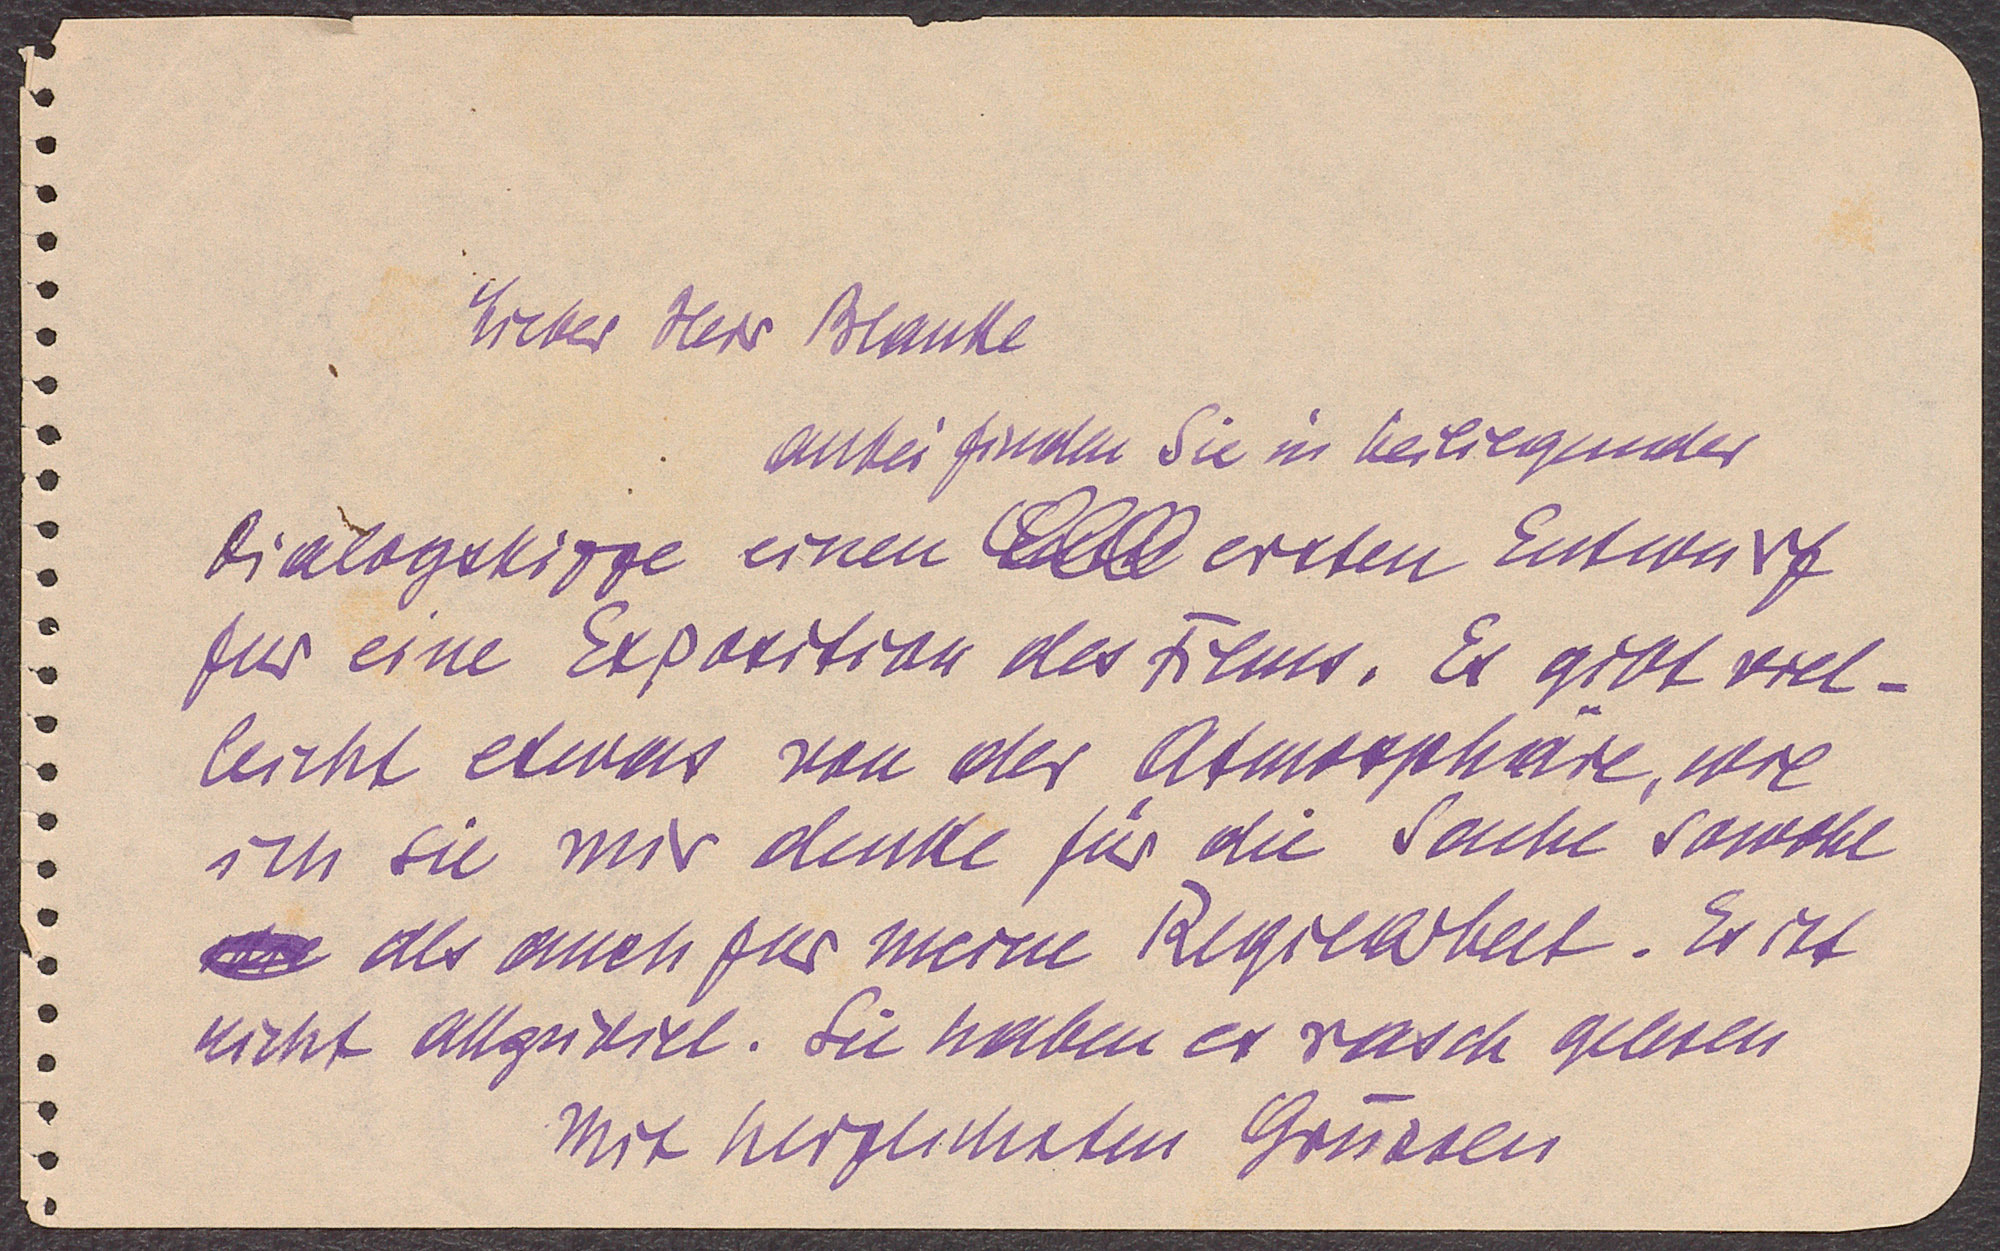 Lieber Herr Blanke
anbei finden Sie in beiliegender
Dialogskizze einen ersten Entwurf
fur eine Exposition des Films. Es gibt viel-
leicht etwas von der Atmosphäre, wie
ich sie mir denke für die Sache sowohl
als auch fur meine Regiearbeit. Es ist
nicht allzuviel. Sie haben es rasch gelesen
Mit herzlichsten Grüssen